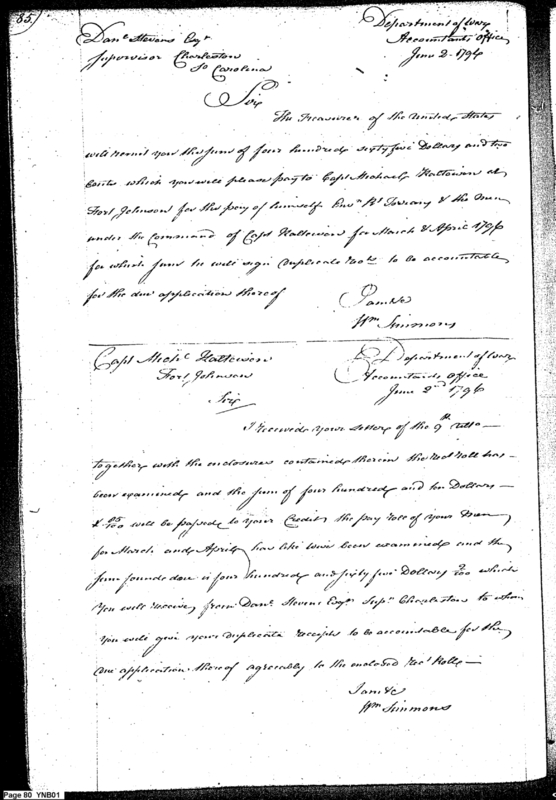 85.
Department of War
Danl Stevens Esqr
Accountants Office
Supervisor Charleston
June 2. 1796
So Carolina
Sir
The Treasurer of the United States
will remit you the sum of four hundred sixty five Dollars and two
Cents which you will please pay to Capt Michael Kalteisen at
Fort Johnson for the pay of himself & the Men
under the command of Capt Kalteisen for March & April 1796
for which sum he will sign duplicate to be accountable
for the due application thereof
I am &c
Wm Simmons
Capt Michl Kalteisen
Department of War
Fort Johnson
Accountants Office
June 2nd 1796
Sir
I received your Letter of the 9th ulto
together with the enclosures contained therein the Rect Roll has
been examined and the sum of four hundred and ten Dollars
& 25/100 will be passed to your Credit, the pay roll of your Men
for March and April, has like wise been examined and the
sum found due is four hundred and sixty five Dollars 2/100 which
you will receive from Danl Stevens Esqr Supr Charleston to whom
you will give your duplicate receipts to be accountable for the
due application thereof agreeably to the enclosed Rect Rolls
I am &c
Wm Simmons
Page 80 YNB01